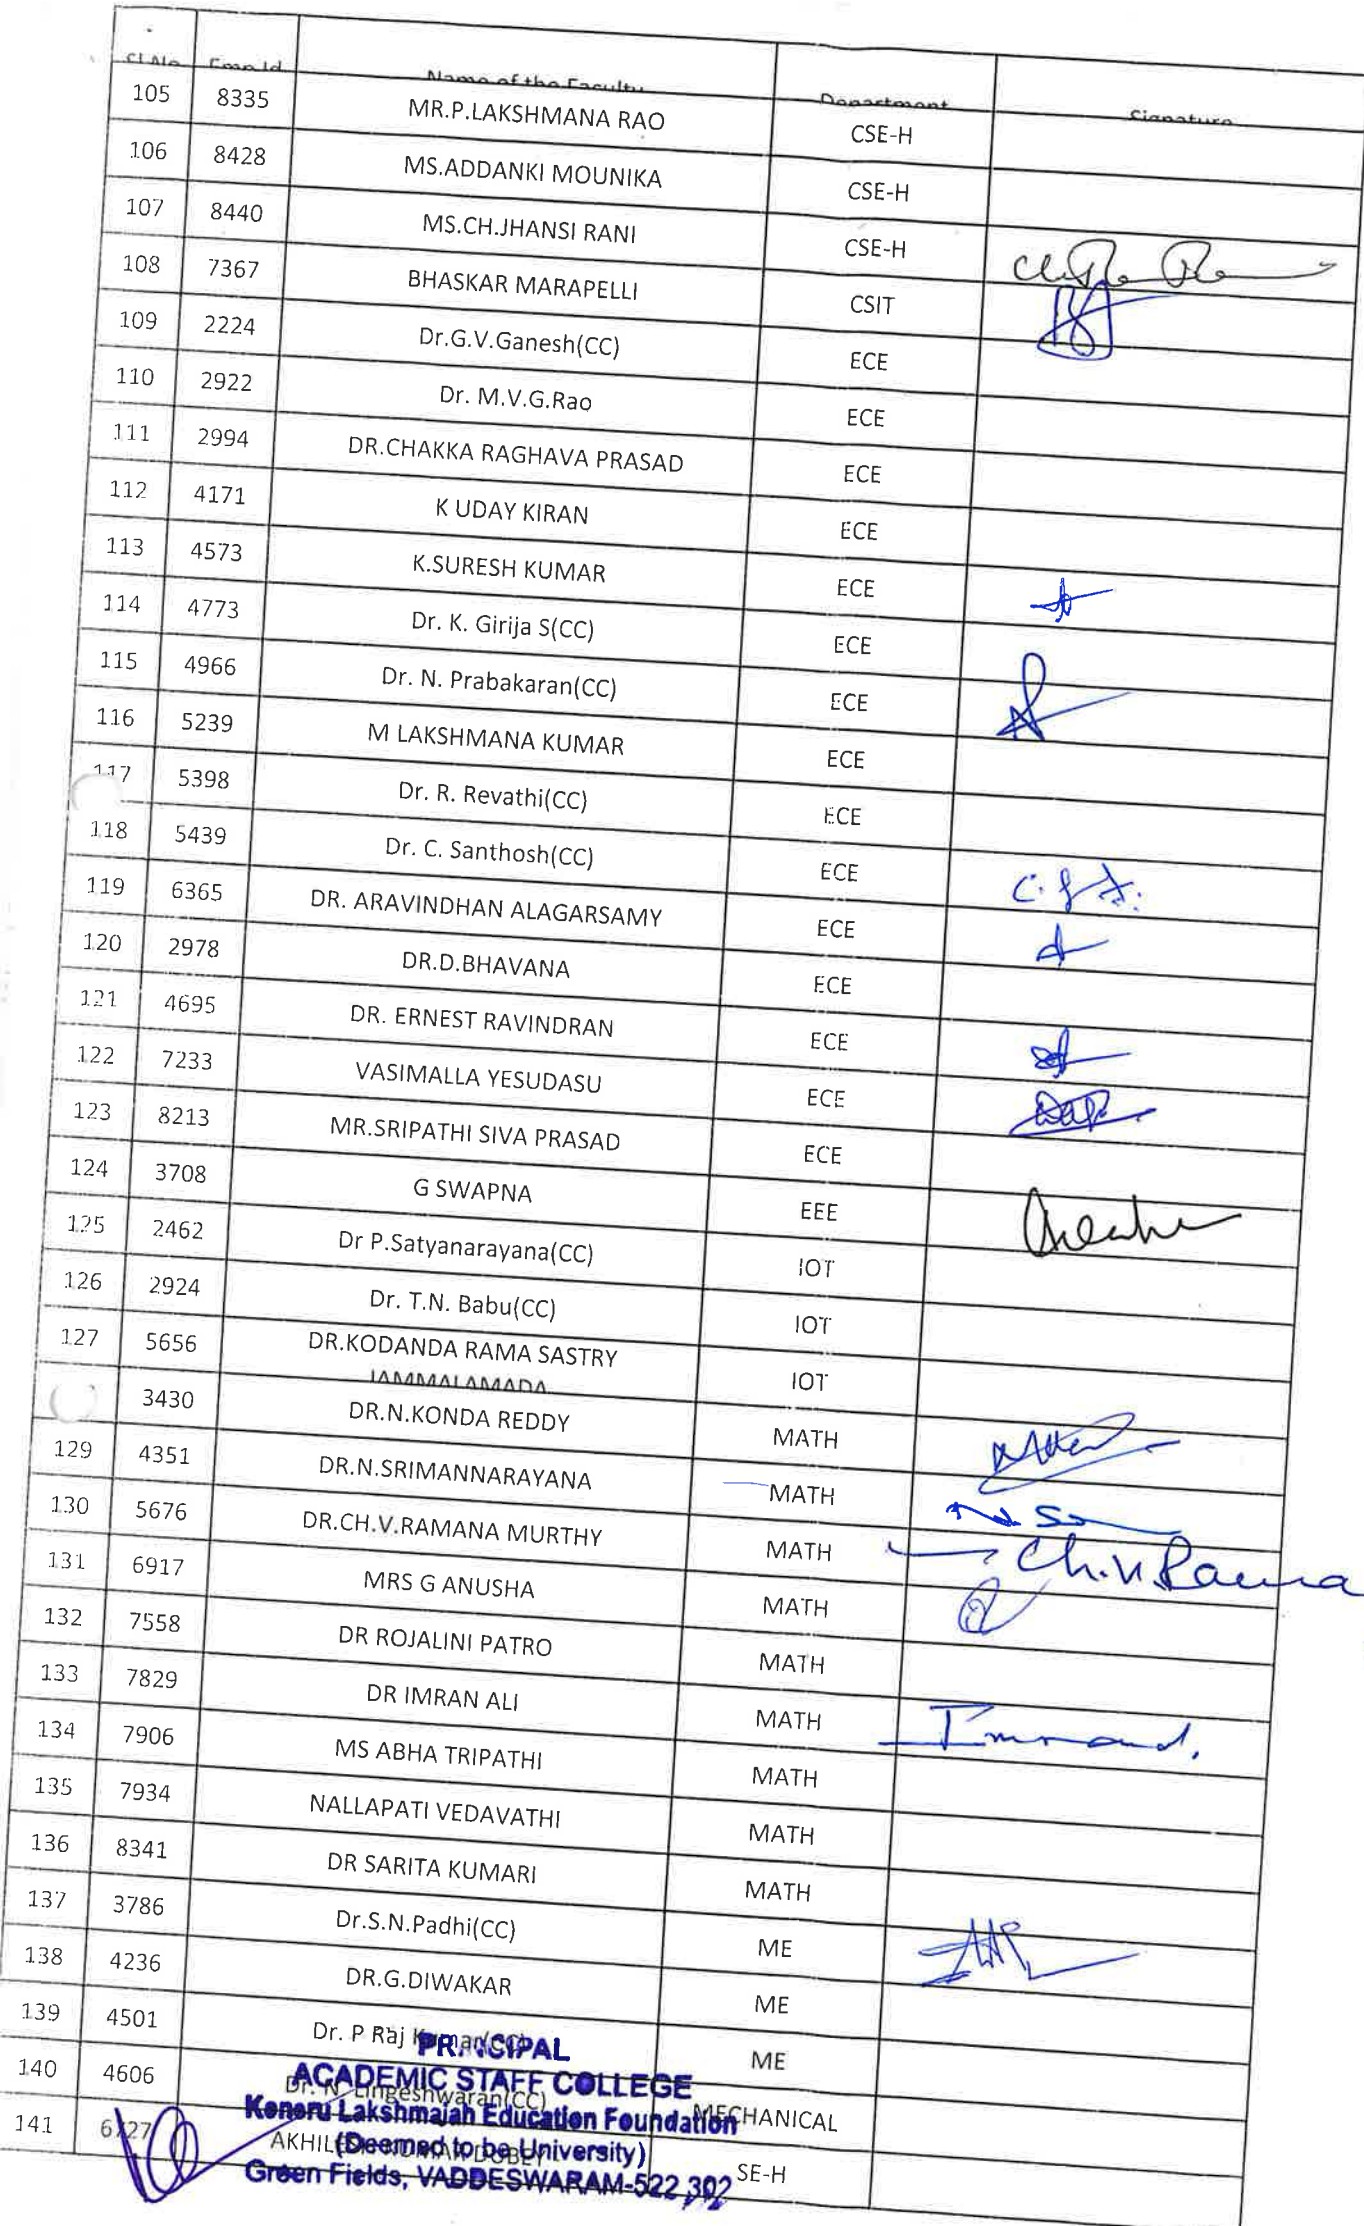 Sl.No Emp Id Name of the Faculty Department Signature
105 8335 MR.P.LAKSHMANA RAO CSE-H
106 8428 MS.ADDANKI MOUNIKA CSE-H
107 8440 MS.CH.JHANSI RANI CSE-H
108 7367 BHASKAR MARAPELLI CSIT
109 2224 Dr.G.V.Ganesh(CC) ECE
110 2922 Dr. M.V.G.Rao ECE
111 2994 DR.CHAKKA RAGHAVA PRASAD ECE
112 4171 K UDAY KIRAN ECE
113 4573 K.SURESH KUMAR ECE
114 4773 Dr. K. Girija S(CC) ECE
115 4966 Dr. N. Prabakaran(CC) ECE
116 5239 M LAKSHMANA KUMAR ECE
117 5398 Dr. R. Revathi(CC) ECE
118 5439 Dr. C. Santhosh(CC) ECE
119 6365 DR. ARAVINDHAN ALAGARSAMY ECE
120 2978 DR.D.BHAVANA ECE
121 4695 DR. ERNEST RAVINDRAN ECE
122 7233 VASIMALLA YESUDASU ECE
123 8213 MR.SRIPATHI SIVA PRASAD ECE
124 3708 G SWAPNA EEE
125 2462 Dr P.Satyanarayana(CC) IOT
126 2924 Dr. T.N. Babu(CC) IOT
127 5656 DR.KODANDA RAMA SASTRY IOT
JAMMALAMADA
3430 DR.N.KONDA REDDY MATH
129 4351 DR.N.SRIMANNARAYANA MATH
130 5676 DR.CH.V.RAMANA MURTHY MATH Ch.V.Rama
131 6917 MRS G ANUSHA MATH
132 7558 DR ROJALINI PATRO MATH
133 7829 DR IMRAN ALI MATH
134 7906 MS ABHA TRIPATHI MATH
135 7934 NALLAPATI VEDAVATHI MATH
136 8341 DR SARITA KUMARI MATH
137 3786 Dr.S.N.Padhi(CC) ME
138 4236 DR.G.DIWAKAR ME
139 4501 Dr. P Raj Kumar(CC) ME
140 4606 Dr. N. Lingeshwaran(CC) MECHANICAL
141 SE-H
PRINCIPAL
ACADEMIC STAFF COLLEGE
Koneru Lakshmaiah Education Foundation
(Deemed to be University)
Green Fields, VADDESWARAM-522 302